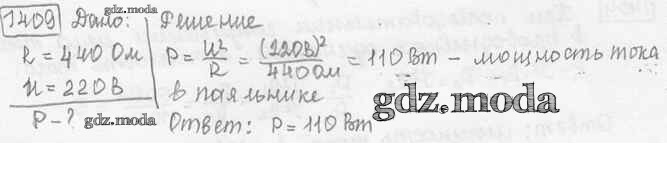 1409 Дано: Решение
gdz.moda
R = 440 Ом P = U²/R = (220В)²/440 Ом = 110 Вт – мощность тока
U = 220В в паяльнике
gdz.moda
P – ? gdz.moda Ответ: P = 110 Вт